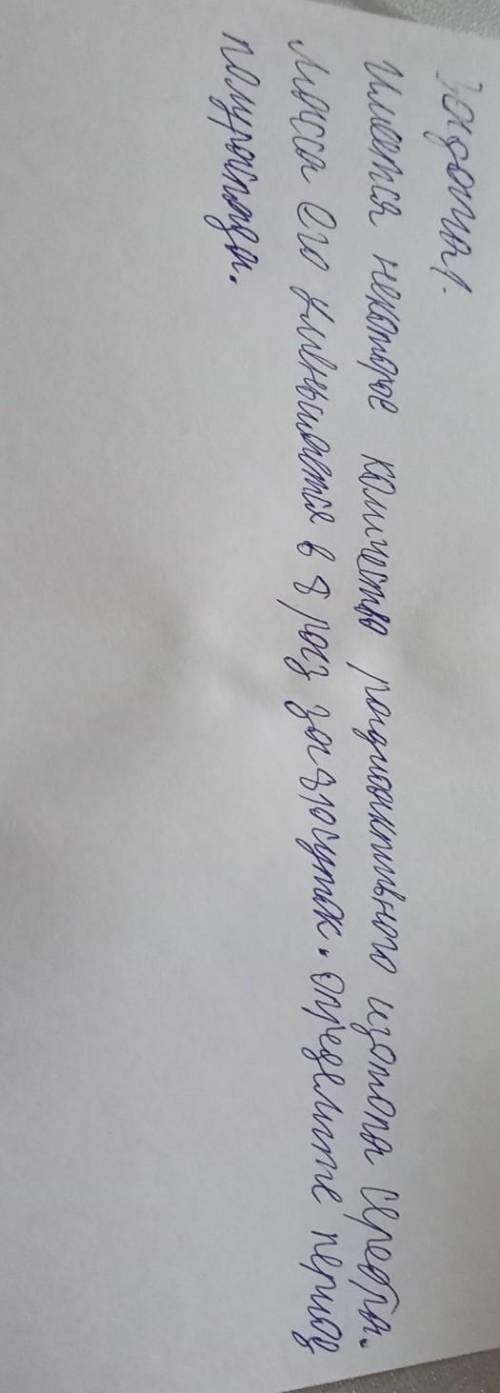 Задача 1.
Имеется некоторое количество радиоактивного изотопа серебра.
Масса его уменьшается в 8 раз за 810 суток. Определите период
полураспада.